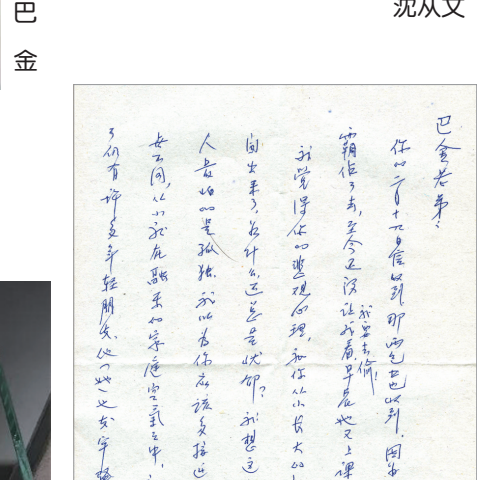 沈从文
巴金
巴金老弟：
你的二月十九日信收到，那两包也收到，因为
霸佔了去，至今还没让我看，早晨她又上课
我要去偷！
我觉得你的悲观心理，和你从小长大的
闯出来了，为什么还总是忧郁？我想这
人最怕的是孤独，我以为你应该多接近
女不同，从小就在融柔的家庭空气之中，
了们有许多年轻朋友，他（她）也